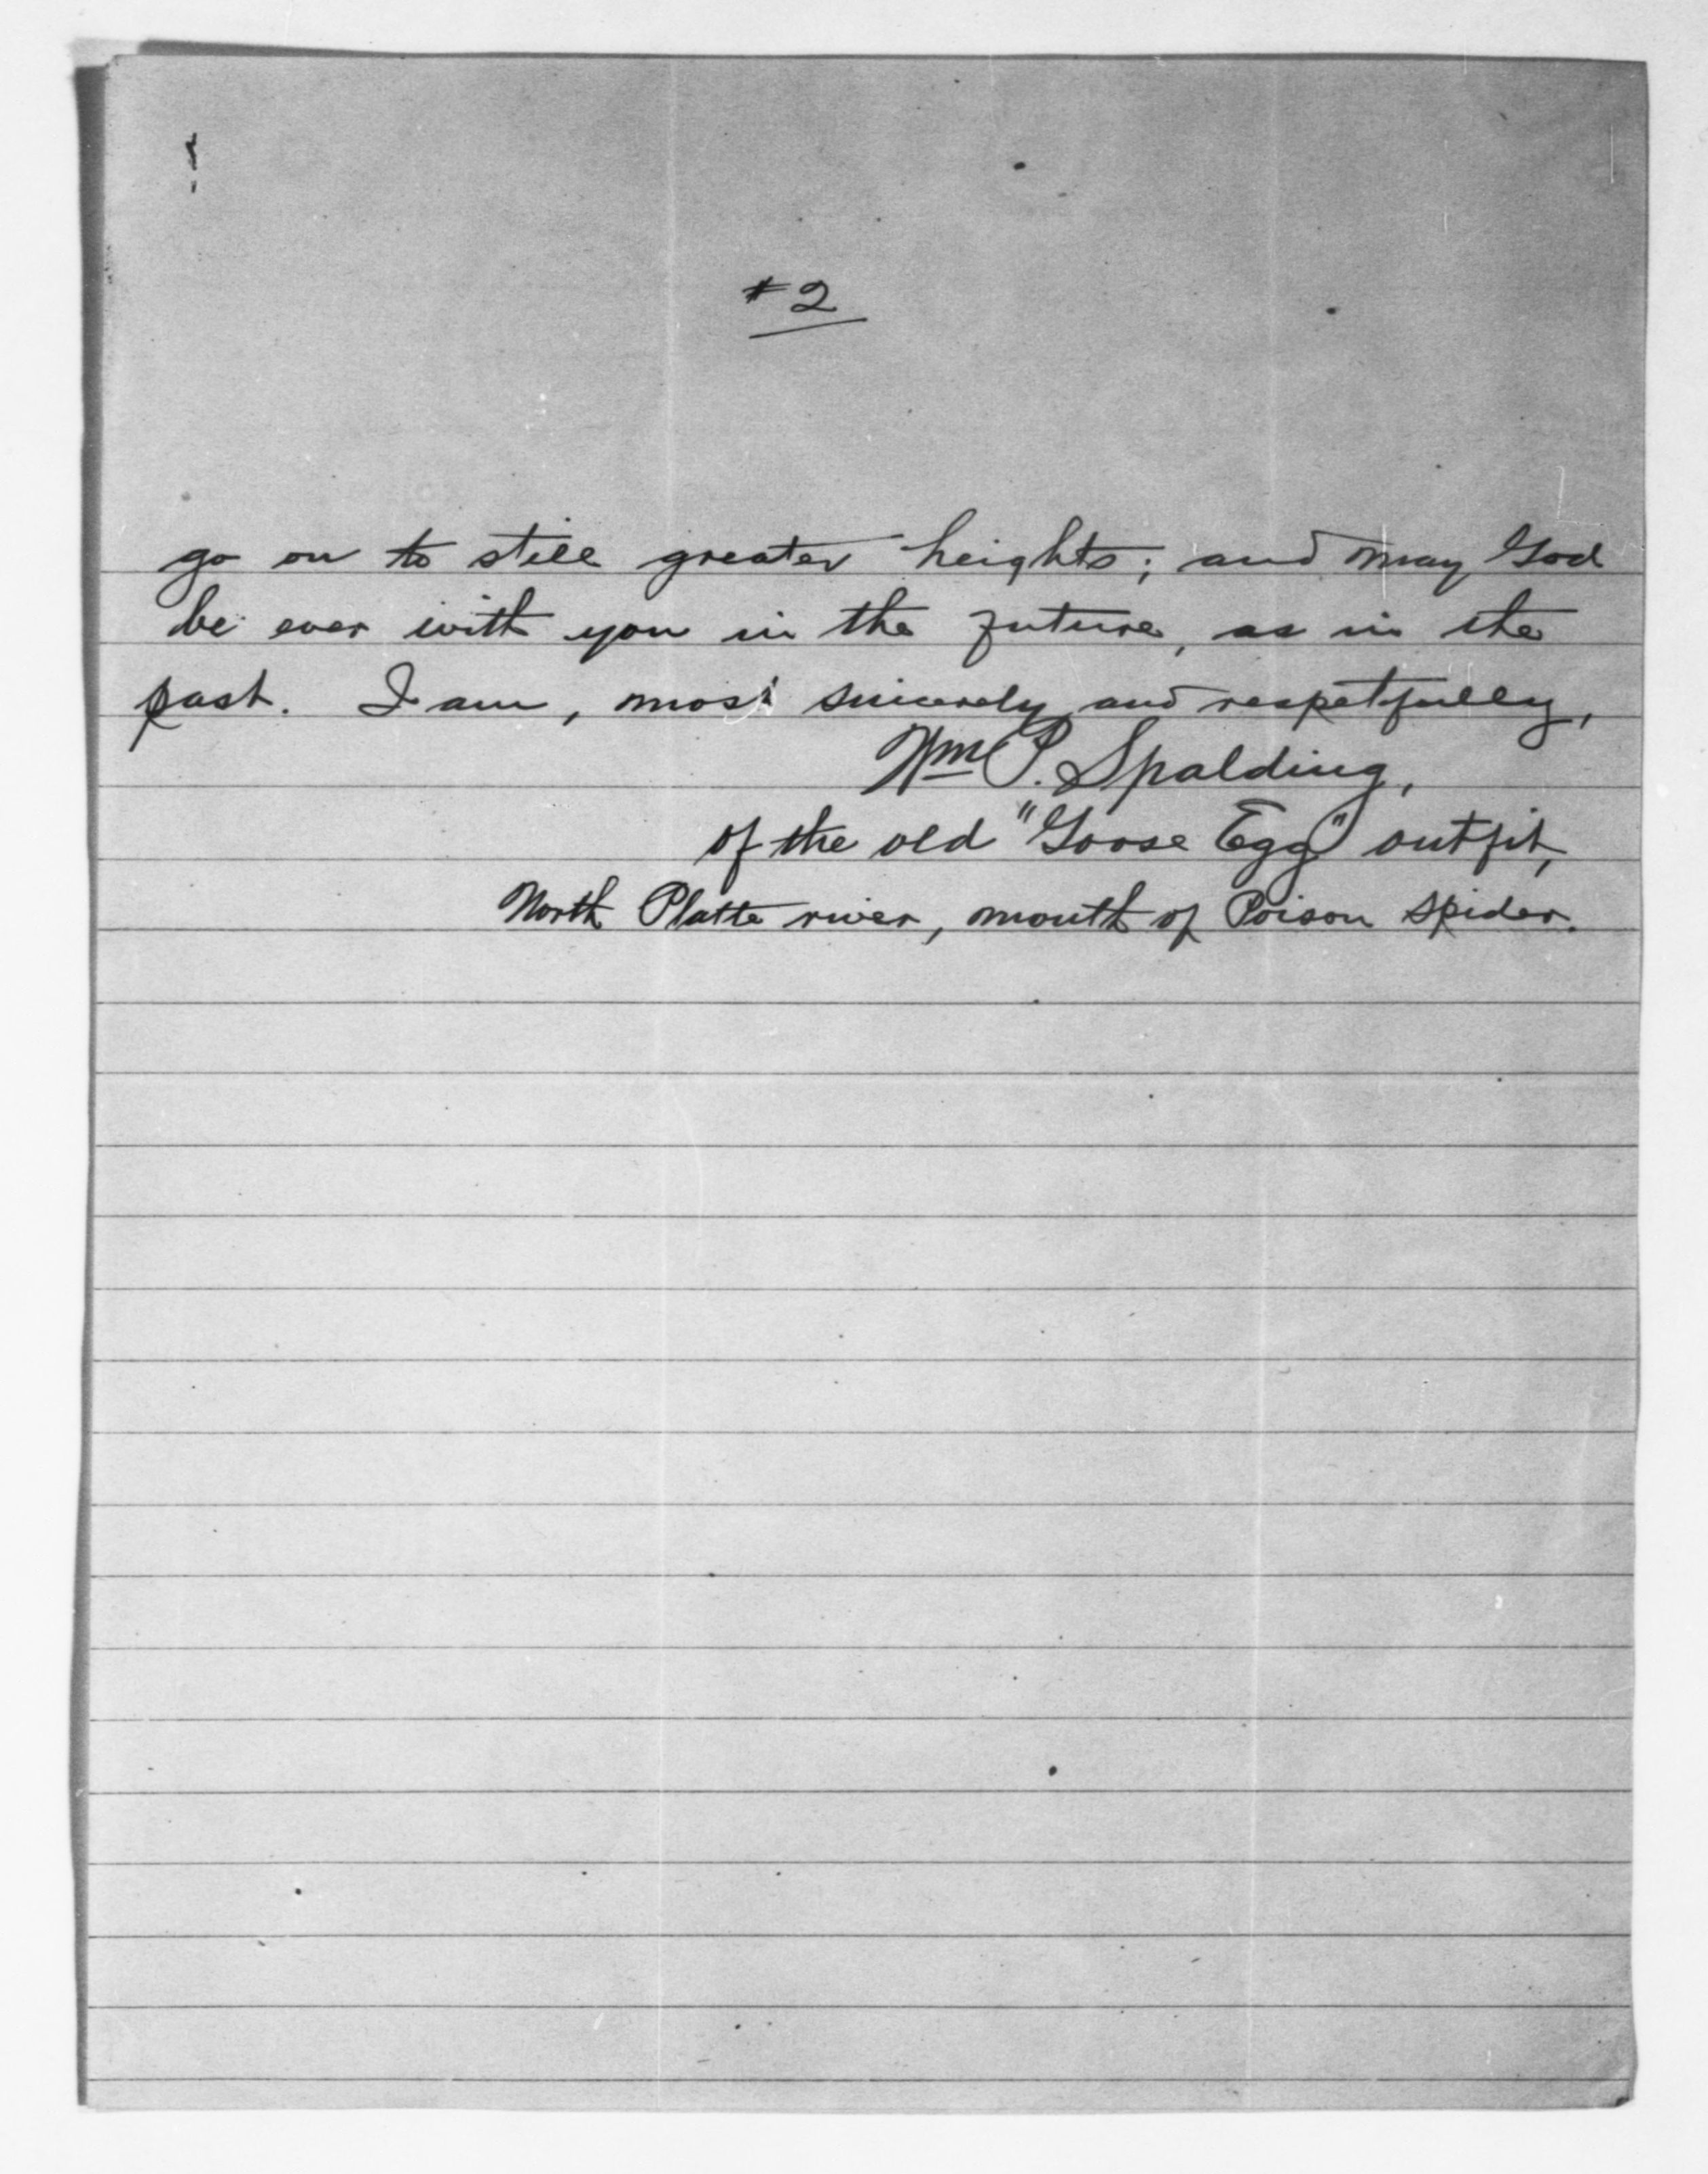 #2
go on to still greater heights; and may God
be ever with you in the future, as in the
past. I am, most sincerely and respetfully,
Wm P. Spalding,
of the old "Goose Egg" outfit,
North Platte river, mouth of Poison Spider.